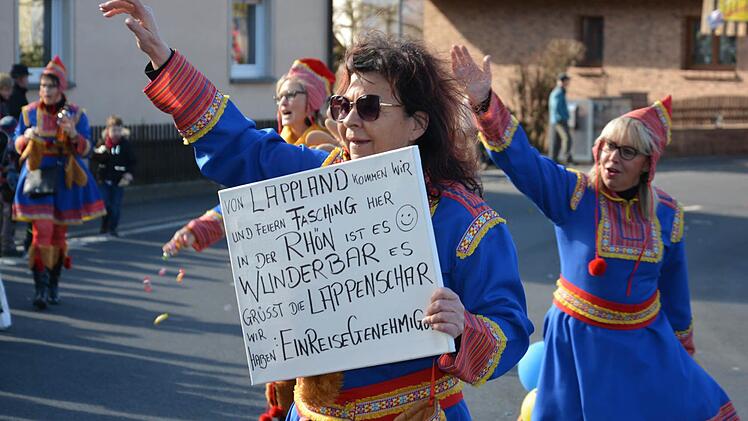 VON LAPPLAND KOMMEN WIR
UND FEIERN FASCHING HIER
IN DER RHÖN IST ES
WUNDERBAR ES
GRÜSST DIE LAPPENSCHAR
WIR
HABEN: EINREISEGENEHMIGU